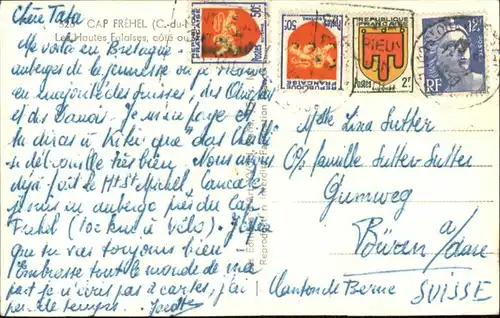 Chère Tata
CAP FRÉHEL (C.-du-
Les Hautes Falaises, côté ou
Me voilà en Bretagne.
auberges de la jeunesse où je trouve
en majorité des Suisses, des Anglais
et des Danois. Je m'aie forge et
tu diras à Kiki que "das
se débrouille très bien. Nous avons
déjà fait le Mt St Michel, Cancale
nous en auberge près du Cap
Fréhel (10 km à vélo). J'espère
que tu vas toujours bien!
Embrasse tout le monde de ma
part je n'écris pas 2 cartes, j'ai
peu de temps.
RÉPUBLIQUE
FRANÇAISE
50c
50c
POSTES
FRANÇAISE
RÉPUBLIQUE
FRANÇAISE
Postes
2F
12F
RF
Reproduction interdite
Mlle Lina Sutter
c/o famille Sutter-Sutter
Gumweg
Büren a/Aare
Canton de Berne SUISSE